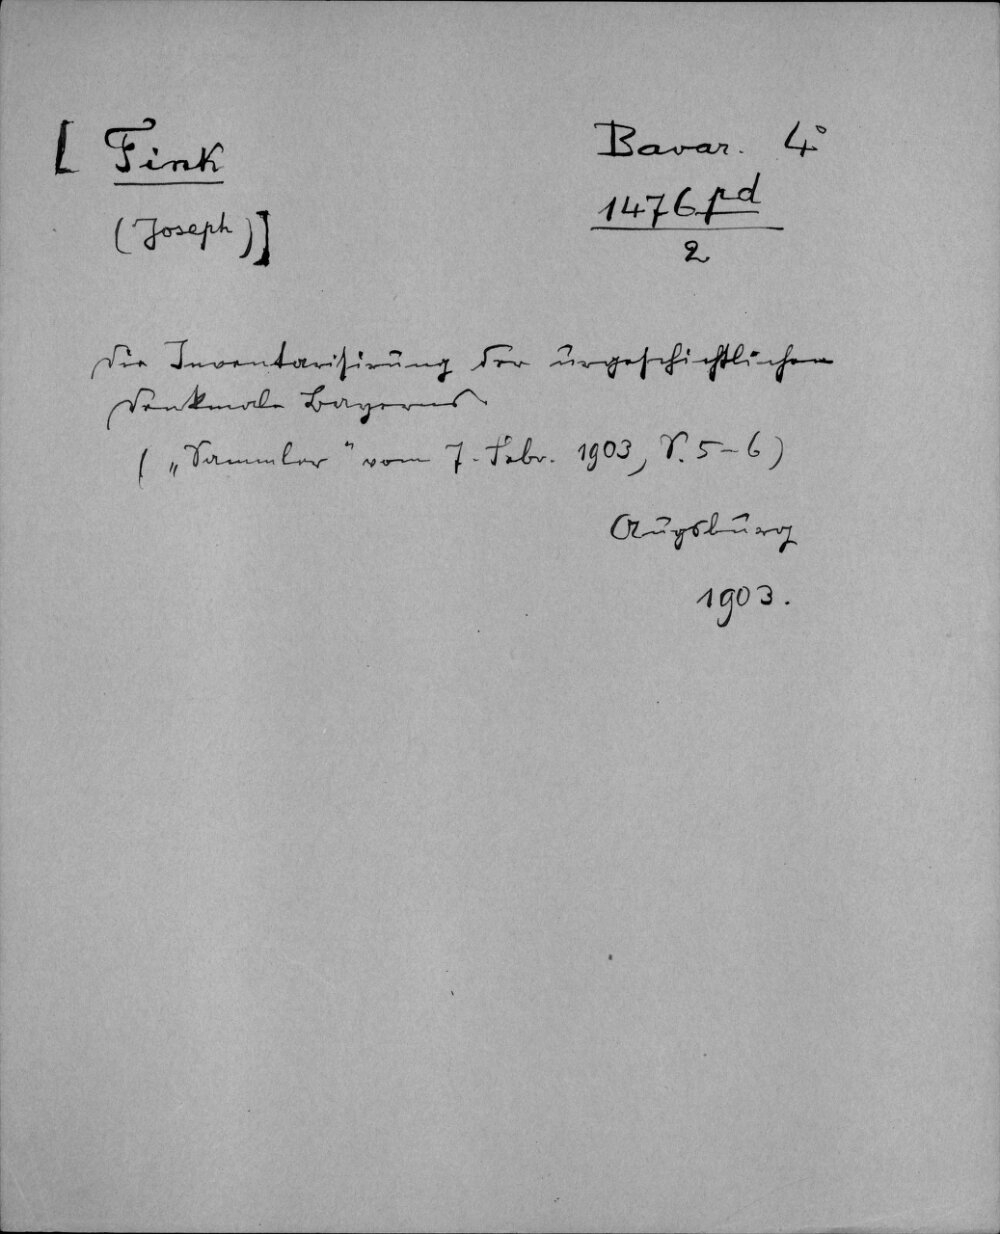 [ Fink
(Joseph)]
Bavar. 4°
1476 pd
2
Die Inventarisirung der urgeschichtlichen
Denkmale Bayerns.
( „Sammler" vom 7. Febr. 1903, S. 5-6)
Augsburg
1903.